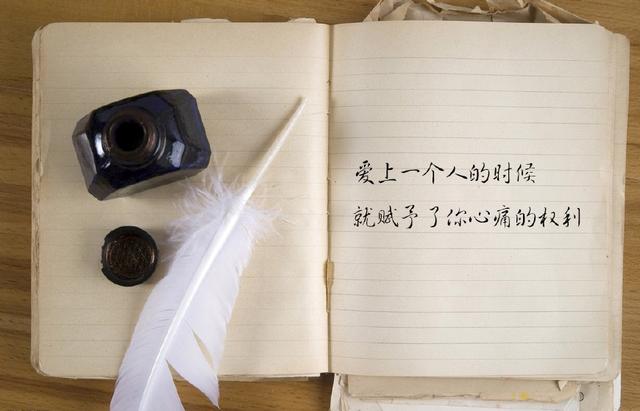 爱上一个人的时候
就赋予了你心痛的权利